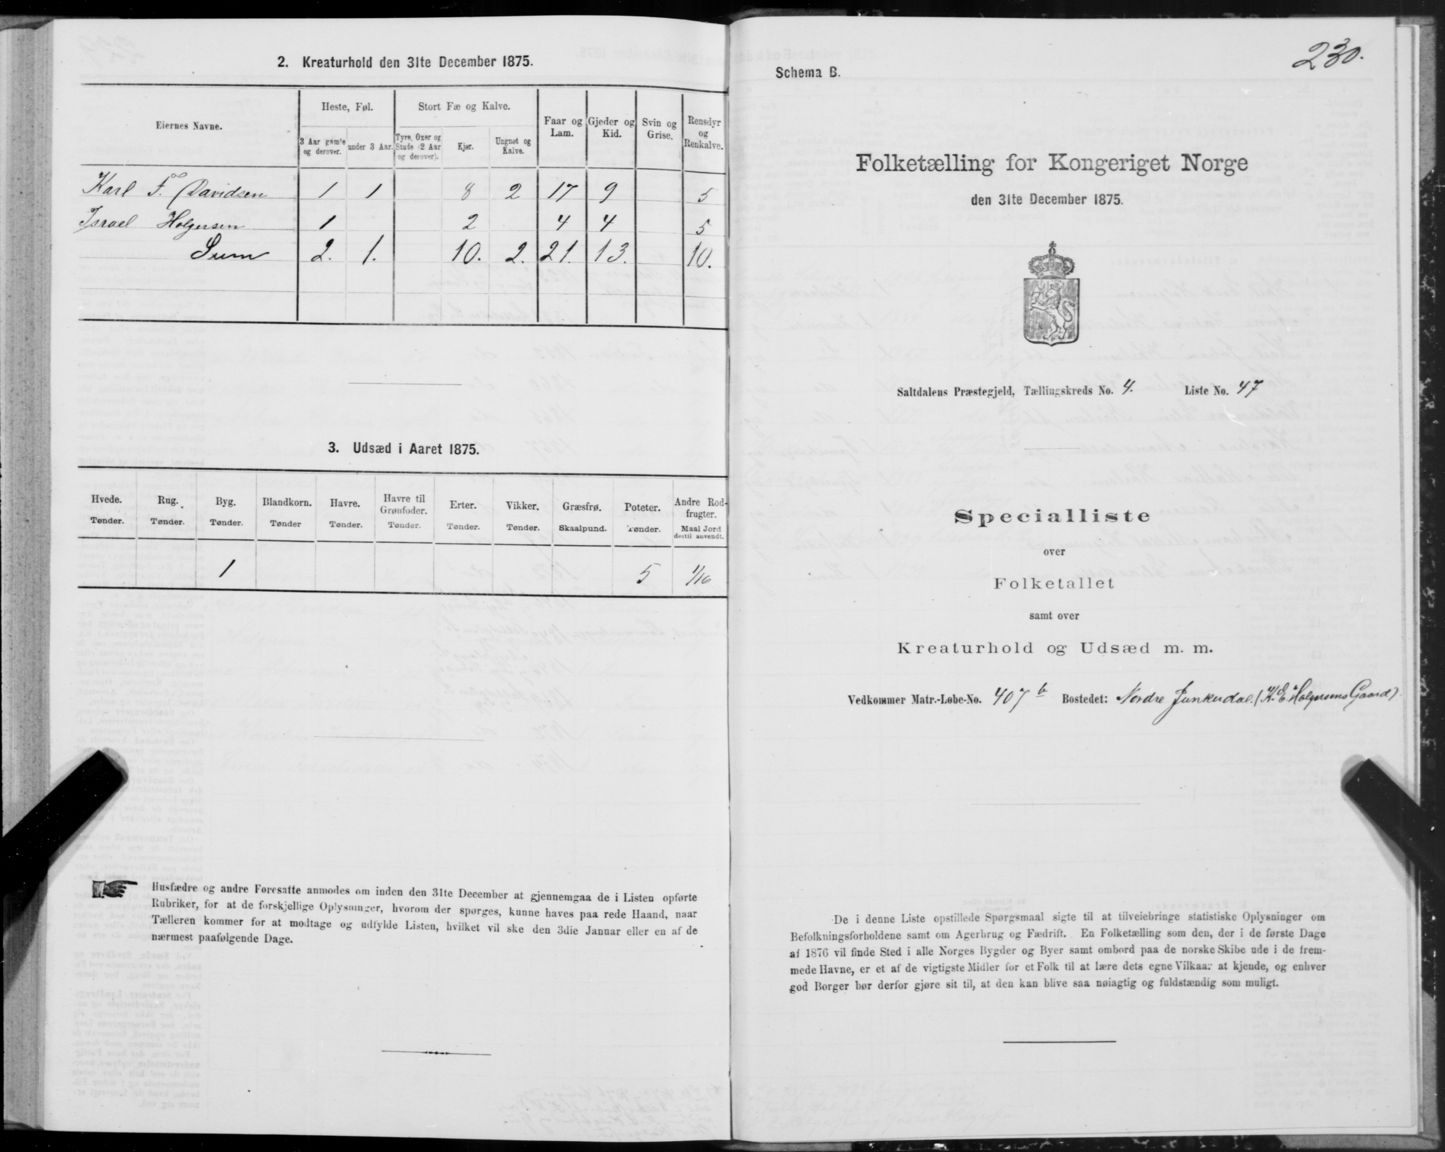 2. Kreaturhold den 31te December 1875.
Eiernes Navne. Heste, Føl. Stort Fæ og Kalve. Faar og Lam. Gjeder og Kid. Svin og Grise. Rensdyr og Renkalve.
3 Aar gamle og derover. under 3 Aar. Tyre, Oxer og Stude (2 Aar og derover). Kjør. Ungnøt og Kalve.
Karl F. Davidsen 1 1 8 2 17 9 5
Israel Holgersen 1 2 4 4 5
Sum 2. 1. 10. 2. 21 13. 10.
3. Udsæd i Aaret 1875.
Hvede. Rug. Byg. Blandkorn. Havre. Havre til Grønfoder. Erter. Vikker. Græsfrø. Poteter. Andre Rodfrugter.
Tønder. Tønder. Tønder. Tønder Tønder. Tønder. Tønder. Tønder. Skaalpund. Tønder. Maal Jord dertil anvendt.
1 5 1/16
Husfædre og andre Foresatte anmodes om inden den 31te December at gjennemgaa de i Listen opførte
Rubriker, for at de forskjellige Oplysninger, hvorom der spørges, kunne haves paa rede Haand, naar
Tælleren kommer for at modtage og udfylde Listen, hvilket vil ske den 3die Januar eller en af de
nærmest paafølgende Dage.
230.
Schema B.
Folketælling for Kongeriget Norge
den 31te December 1875.
Saltdalens Præstegjeld, Tællingskreds No. 4. Liste No. 47
Specialliste
over
Folketallet
samt over
Kreaturhold og Udsæd m. m.
Vedkommer Matr.-Løbe-No. 407 b Bostedet: Nordre Junkerdal. (K. E. Holgersens Gaard).
De i denne Liste opstillede Spørgsmaal sigte til at tilveiebringe statistiske Oplysninger om
Befolkningsforholdene samt om Agerbrug og Fædrift. En Folketælling som den, der i de første Dage
af 1876 vil finde Sted i alle Norges Bygder og Byer samt ombord paa de norske Skibe ude i de frem-
mede Havne, er et af de vigtigste Midler for et Folk til at lære dets egne Vilkaar at kjende, og enhver
god Borger bør derfor gjøre sit til, at den kan blive saa nøiagtig og fuldstændig som muligt.